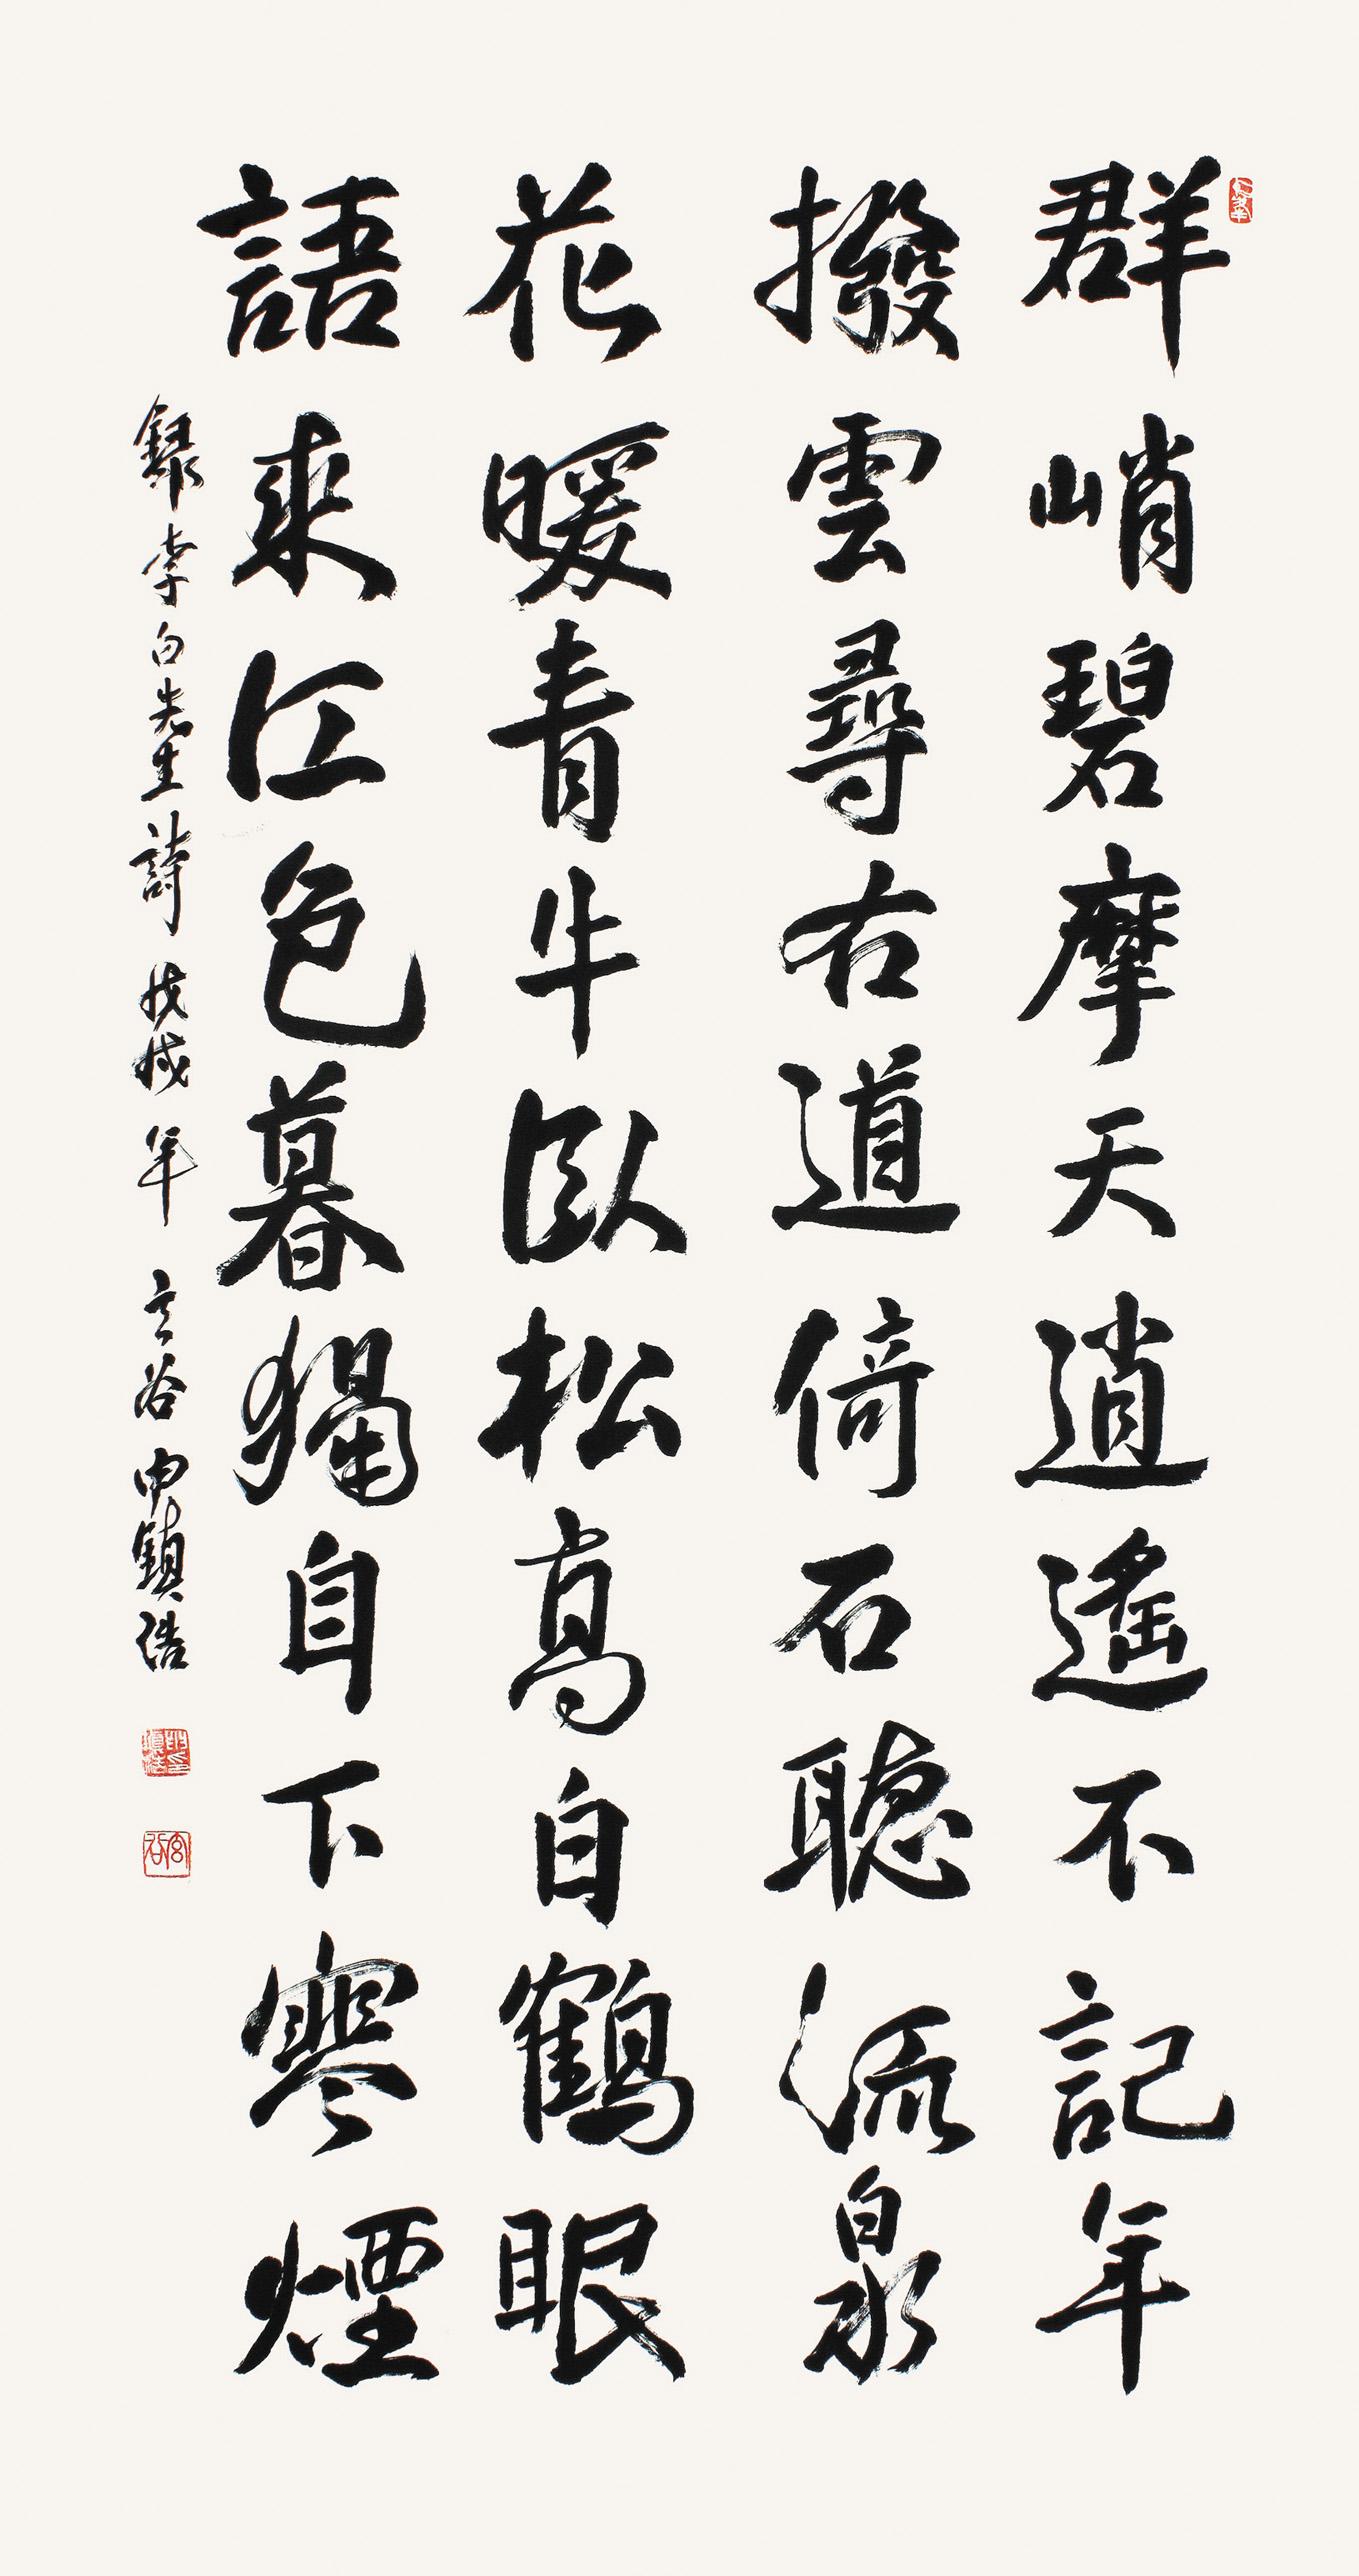 群峭碧摩天逍遙不記年
撥雲尋古道倚石聽流泉
花暖青牛臥松高白鶴眠
語來江色暮獨自下寒煙
錄李白先生詩 戊戌年 玄谷 申鎮浩
玄谷